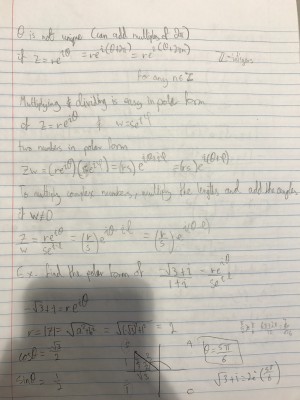 θ is not unique (can add multiples of 2π)
if z = re^{iθ} = re^{i(θ+2π)} = re^{i(θ+2πn)} ℤ-integers
for any n∈ℤ
Multiplying & dividing is easy in polar form
if z = re^{iθ} & w = se^{iφ}
two numbers in polar form
zw = (re^{iθ})(se^{iφ}) = (rs) e^{iθ+iφ} = (rs)e^{i(θ+φ)}
To multiply complex numbers, multiply the lengths and add the angles
if w≠0
z/w = re^{iθ}/se^{iφ} = (r/s) e^{iθ-iφ} = (r/s) e^{i(θ-φ)}
Ex. Find the polar form of -√3+i/1+i = re^{iθ}/se^{iφ}
-√3+i = re^{iθ}
r = |z| = √a²+b² = 2
cosθ = -√3/2
θ = 5π/6
sinθ = 1/2